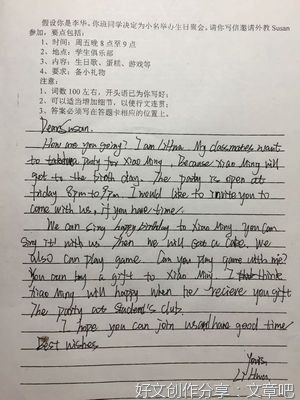 假设你是李华。你班同学决定为小名举办生日聚会。请你写信邀请外教 Susan
参加，要点包括：
1、时间：周五晚 8 点至 9 点
2、地点：学生俱乐部
3、内容：生日歌、蛋糕、游戏等
4、要求：备小礼物
注意：
1、词数 100 左右，开头语已为你写好；
2、可以适当增加细节，以使行文连贯；
3、答案必须写在答题卡相应的位置上。
Dear Susan.
How are you going? I am LiHua. My classmates want
to party for Xiao Ming. Because Xiao Ming will
got to the birth day. The party is open at
friday 8pm to 9pm. I would like to invite you to
come with us, if you have time.
We can sing happy birthday to Xiao Ming. You can
sing it with us. Then we will Gat a cake. We
also can play game. Can you play game with me?
You can buy a gift to Xiao Min. I think
Xiao Ming will happy when he recieve you gift
The party at student's club.
I hope you can join us and have good time!
Best wishes.
Yours,
Li Hua
好文创作分享：文章吧